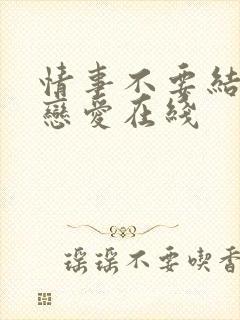 情事不要結
戀愛在綫
瑶瑶不要喫香